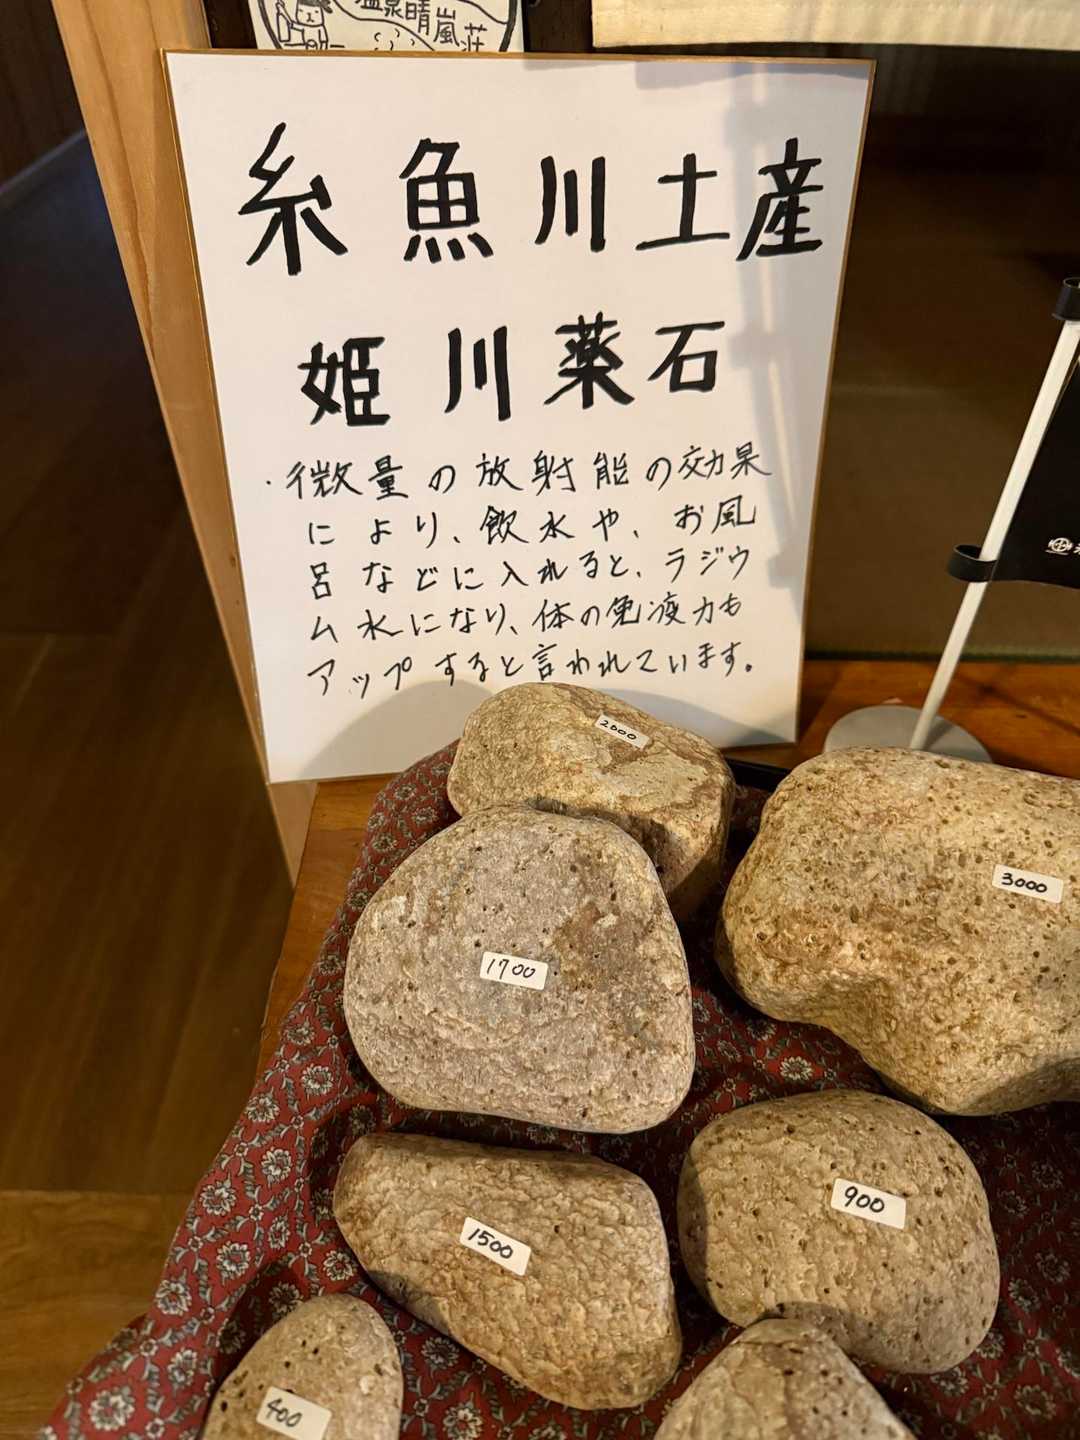 温泉晴嵐荘
糸魚川土産
姫川薬石
・微量の放射能の効果
により、飲水や、お風
呂などに入れると、ラジウ
ム水になり、体の免疫力も
アップすると言われています。
2000
3000
1700
900
1500
400